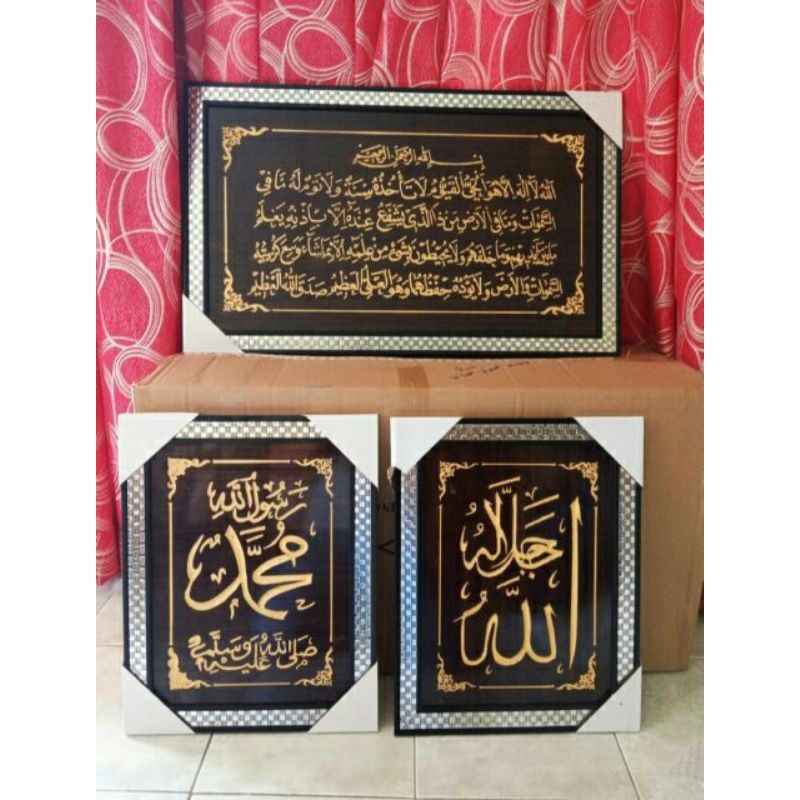 بسم الله الرحمن الرحيم
الله لا إله إلا هو الحي القيوم لا تأخذه سنة ولا نوم له ما في
السموات وما في الأرض من ذا الذي يشفع عنده إلا بإذنه يعلم
ما بين أيديهم وما خلفهم ولا يحيطون بشيء من علمه إلا بما شاء وسع كرسيه
السموات والأرض ولا يؤده حفظهما وهو العلي العظيم صدق الله العظيم
رسول الله
محمد
صلى الله عليه وسلم
جل جلاله
الله